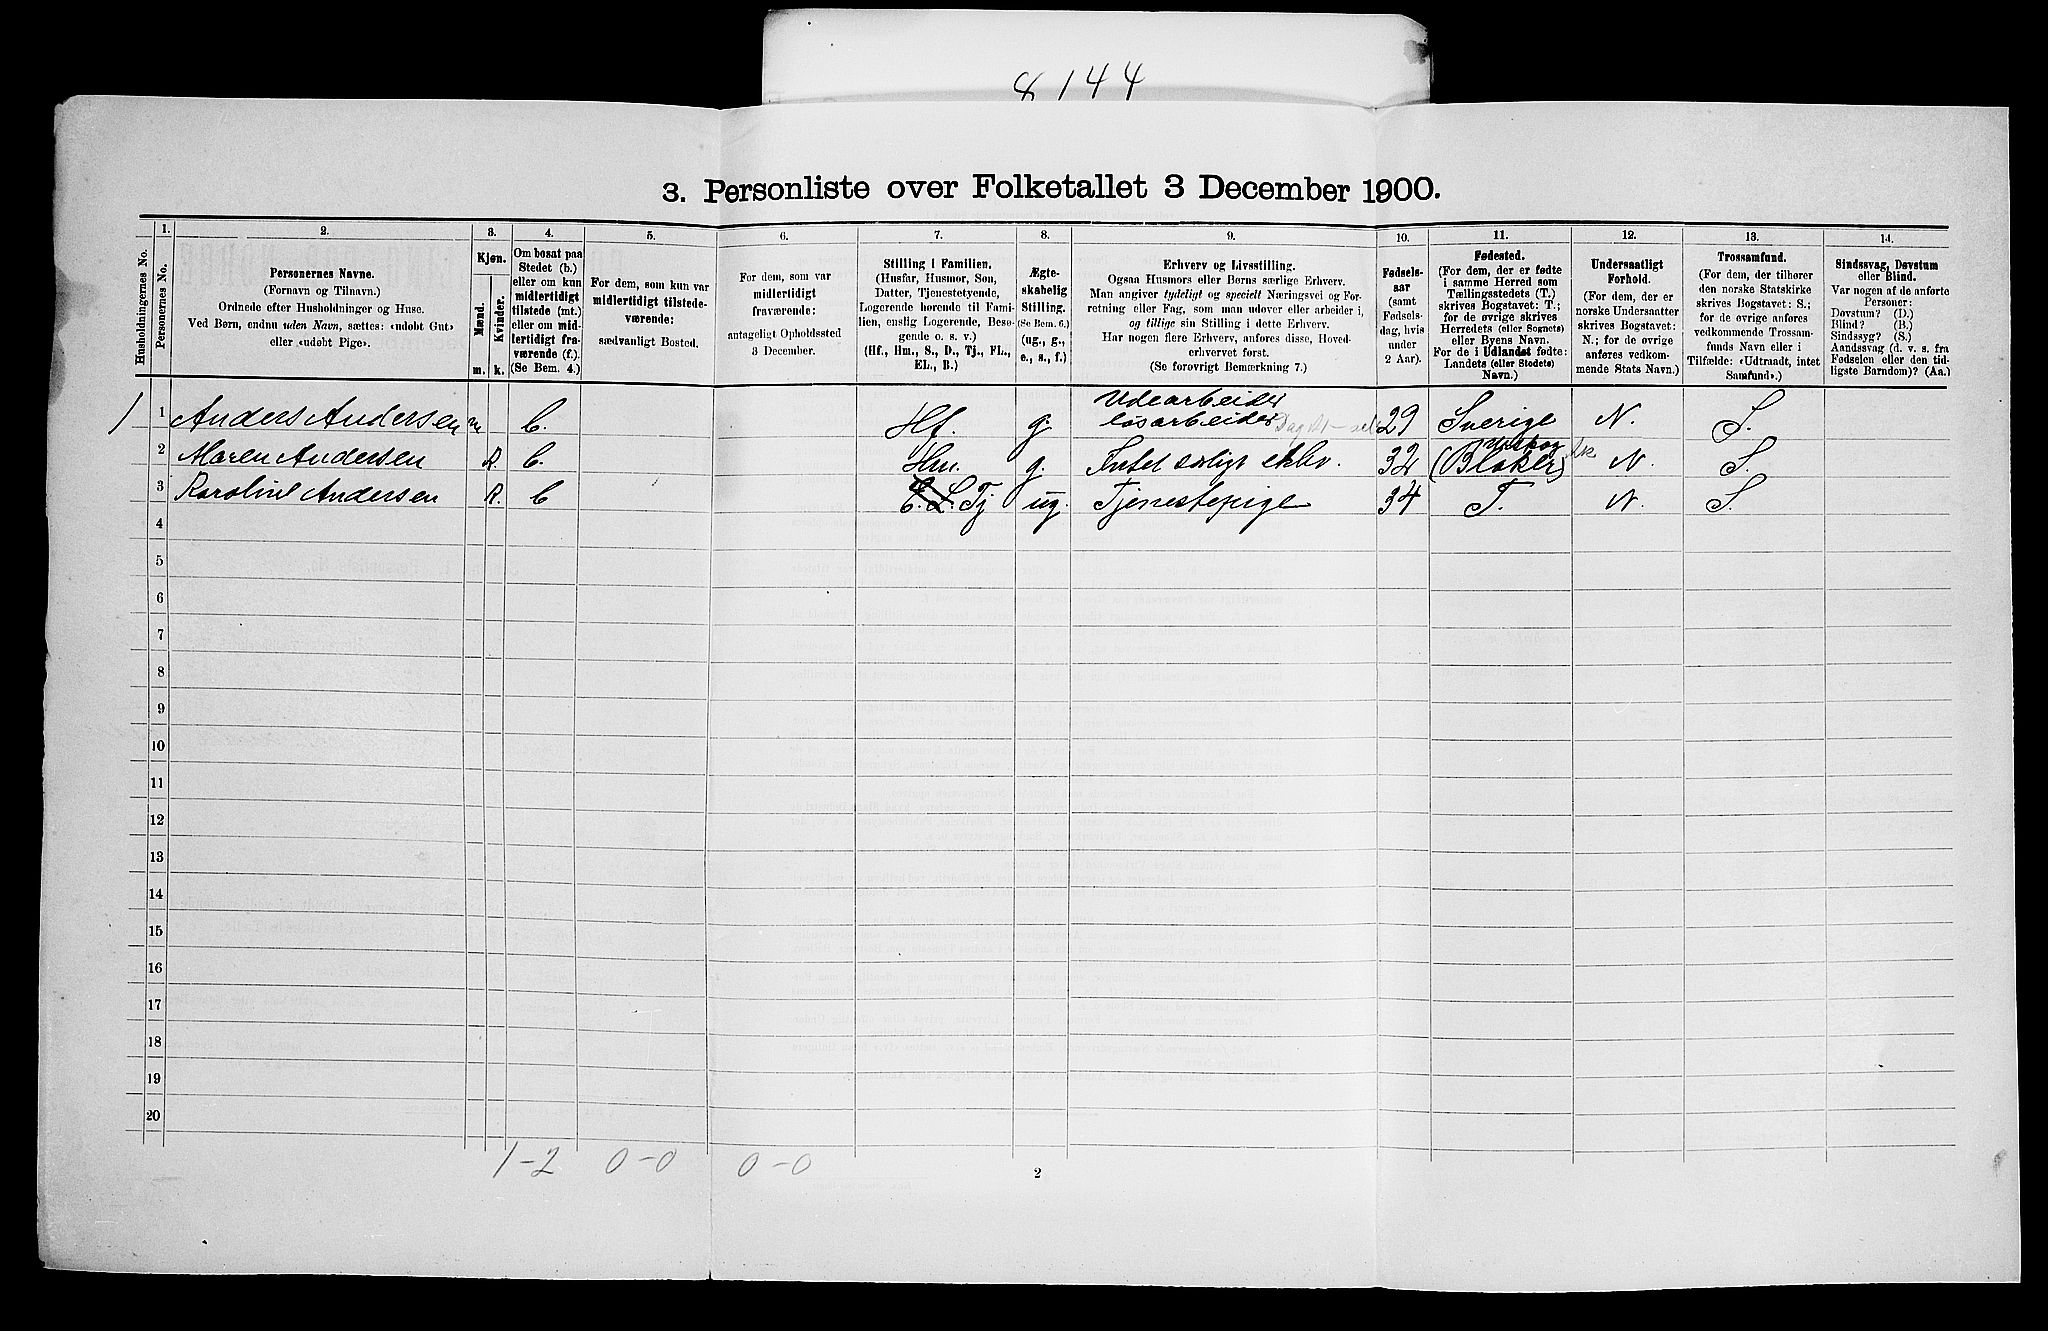 8144
3. Personliste over Folketallet 3 December 1900.
Husholdningernes No.
1.
Personernes No.
2.
Personernes Navne.
(Fornavn og Tilnavn.)
Ordnede efter Husholdninger og Huse.
Ved Børn, endnu uden Navn, sættes: «udøbt Gut»
eller «udøbt Pige».
3.
Kjøn.
Mænd.
Kvinder.
m.
k.
4.
Om bosat paa
Stedet (b.)
eller om kun
midlertidigt
tilstede (mt.)
eller om mid-
lertidigt fra-
værende (f.).
(Se Bem. 4.)
5.
For dem, som kun var
midlertidigt tilstede-
værende:
sædvanligt Bosted.
6.
For dem, som var
midlertidigt
fraværende:
antageligt Opholdssted
3 December.
7.
Stilling i Familien.
(Husfar, Husmor, Søn,
Datter, Tjenestetyende,
Logerende hørende til Fami-
lien, enslig Logerende, Besø-
gende o. s. v.)
(Hf., Hm., S., D., Tj., FL.,
EL., B.)
8.
Ægte-
skabelig
Stilling.
(Se Bem. 6.)
(ug., g.,
e., s., f.)
9.
Erhverv og Livsstilling.
Ogsaa Husmors eller Børns særlige Erhverv.
Man angiver tydeligt og specielt Næringsvei og For-
retning eller Fag, som man udøver eller arbeider i,
og tillige sin Stilling i dette Erhverv.
Har nogen flere Erhverv, anføres disse, Hoved-
erhvervet først.
(Se forøvrigt Bemærkning 7.)
10.
Fødsels-
aar
(samt
Fødsels-
dag, hvis
under
2 Aar).
11.
Fødested.
(For dem, der er fødte
i samme Herred som
Tællingsstedets (T.)
skrives Bogstavet: T.;
for de øvrige skrives
Herredets (eller Sognets)
eller Byens Navn.
For de i Udlandet fødte:
Landets (eller Stedets)
Navn.)
12.
Undersaatligt
Forhold.
(For dem, der er
norske Undersaatter
skrives Bogstavet:
N.; for de øvrige
anføres vedkom-
mende Stats Navn.)
13.
Trossamfund.
(For dem, der tilhører
den norske Statskirke
skrives Bogstavet: S.;
for de øvrige anføres
vedkommende Trossam-
funds Navn eller i
Tilfælde: «Udtraadt, intet
Samfund».)
14.
Sindssvag, Døvstum
eller Blind.
Var nogen af de anførte
Personer:
Døvstum? (D.)
Blind? (B.)
Sindssyg? (S.)
Aandssvag (d. v. s. fra
Fødselen eller den tid-
ligste Barndom)? (Aa.)
Udearbeider
1 1 Anders Andersen m b. Hf. g. løsarbeider 29 Sverige N. S.
2 Maren Andersen k. b. Hm. g. Intet særligt erhv. 32 (Blaker) N. S.
3 Karoline Andersen k. b E.L. Tj ug. Tjenestepige 34 T. N. S.
4
5
6
7
8
9
10
11
12
13
14
15
16
17
18
19
20
1-2 0-0 0-0
2